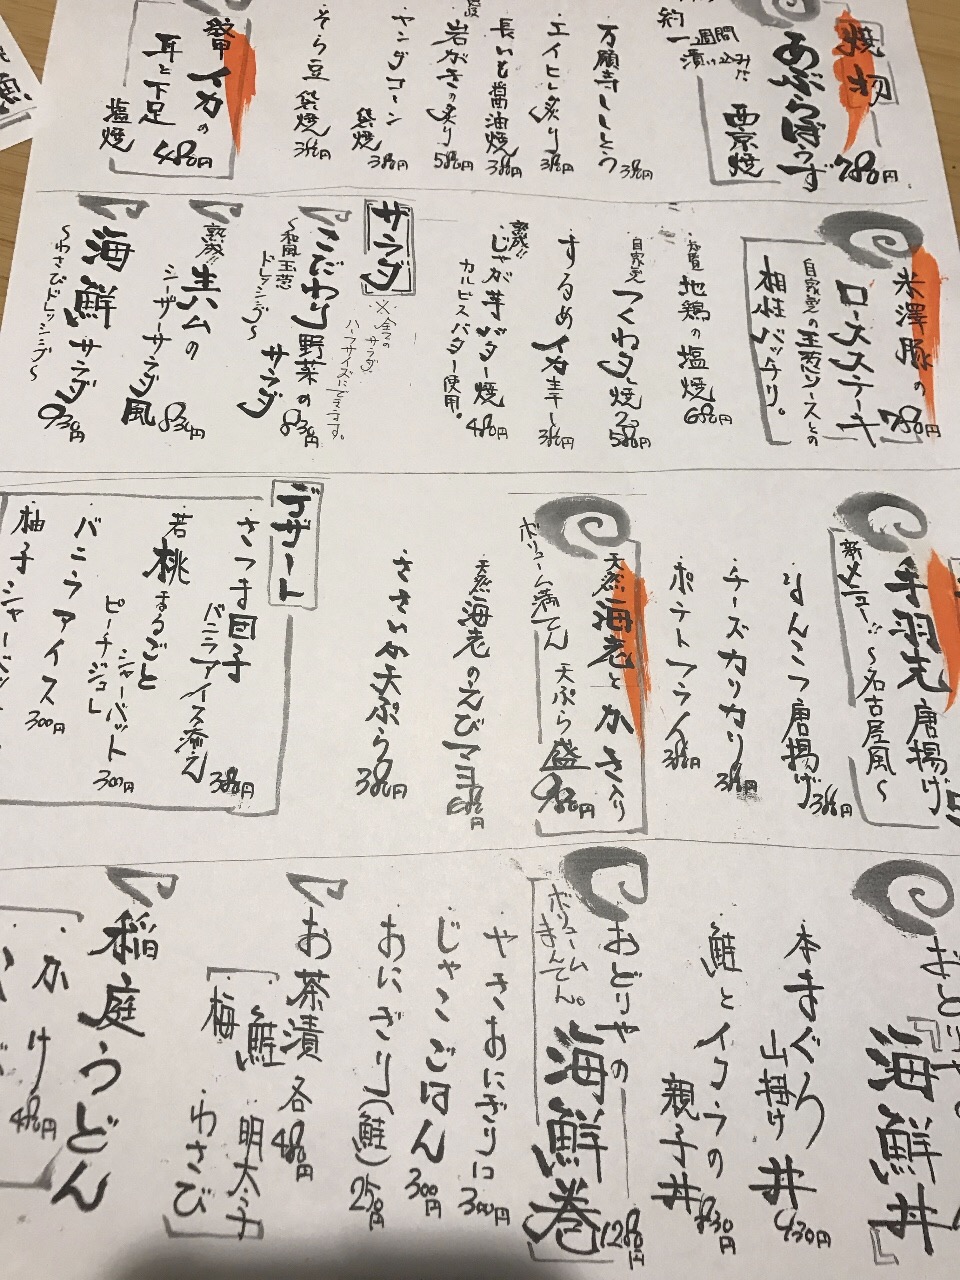 焼物
あぶらぼうず
780円
約一週間
漬け込みた
西京焼
万願寺ししとう
380円
エイヒレ炙り
380円
長いも醤油焼
380円
岩がきの炙り
580円
ヤングコーン
袋焼
380円
そら豆
袋焼
380円
イカの
耳と下足
塩焼
480円
米澤豚の
ロースステーキ
780円
自家製の玉葱ソースとの
相性バッチリ。
地鶏の塩焼
680円
自家製
つくね焼
580円
するめイカ丸干し
380円
熟成!!
じゃが芋バター焼
480円
カルピスバター使用。
サラダ
※全ての
サラダ
ハーフサイズにできます。
こだわり野菜の
サラダ
830円
〜和風玉葱
ドレッシング〜
熟成!!
生ハムの
シーザーサラダ風
830円
海鮮サラダ
930円
〜わさびドレッシング〜
手羽先唐揚げ
新メニュー!!
〜名古屋風〜
なんこつ唐揚げ
380円
チーズカリカリ
380円
ポテトフライ
380円
天然海老とかき入り
ボリューム満てん
天ぷら盛
980円
天然海老のえびマヨ
680円
ささいか天ぷら
380円
デザート
さつま団子
バニラアイス添え
380円
若桃まるごと
シャーベット
ピーチジュレ
300円
バニラアイス
300円
柚子シャーベッ
おどりや
海鮮丼
本まぐろ
山掛け丼
930円
鮭とイクラの
親子丼
830円
おどりやの
海鮮巻
1280円
ボリューム
まんてん。
やきおにぎり
300円
じゃこごはん
300円
おにぎり(鮭)
250円
お茶漬
各480円
鮭
明太子
梅
わさび
稲庭うどん
かけ
480円